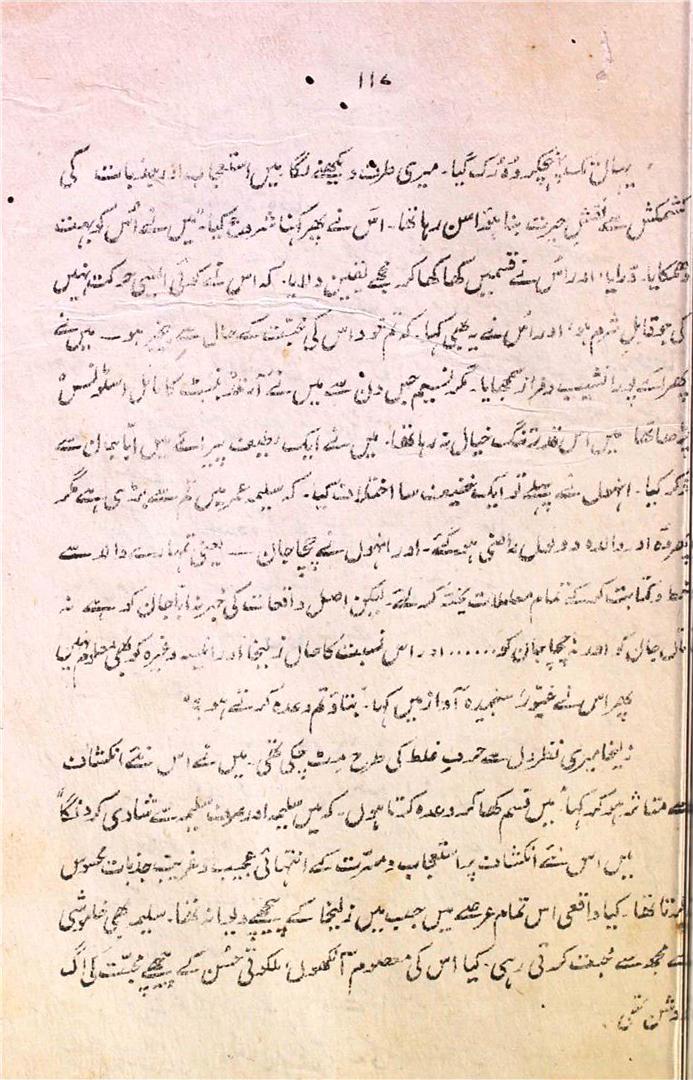 ۱۱۷
یہاں تک پہنچکر وہ رُک گیا۔ میری طرف دیکھنے لگا میں استعجاب اور جذبات کی
کشمکش سے نقشِ حیرت بنا ہوا سن رہا تھا۔ اس نے پھر کہنا شروع کیا۔ "میں نے اُس کو بہت
دھمکایا۔ ڈرایا، اور اس نے قسمیں کھا کھا کر مجھے یقین دلایا۔ کہ اس نے کوئی ایسی حرکت نہیں
کی جو قابلِ شرم ہو، اور اُس نے یہ بھی کہا۔ کہ تم خود اس کی محبت کے حال سے بیخبر ہو۔ میں نے
پھر اسے پورا نشیب و فراز سمجھایا۔ مگر نسیم جس دن سے میں نے آرنلڈ بینٹ کا ناول
پڑھا تھا میں اس قدر تنگ خیال نہ رہا تھا۔ میں نے ایک لطیف پیرائے میں ابا جان سے
ذکر کیا۔ انہوں نے پہلے تو ایک خفیف سا اختلاف کیا۔ کہ سلیمہ عمر میں تم سے بڑی ہے مگر
پھر وہ اور والدہ دونوں راضی ہو گئے۔ اور انہوں نے چچا جان — یعنی تمہارے والد سے
خط و کتابت کر کے تمام معاملات پختہ کر لئے۔ لیکن اصل واقعات کی خبر نہ ابا جان کو ہے نہ
جان کو اور نہ چچا جان کو...... اور اس نسبت کا حال زلیخا اور وغیرہ کو بھی معلوم نہیں
پھر اس نے سنجیدہ آواز میں کہا۔ "بتاؤ تم وعدہ کرتے ہو؟"
زلیخا میری نظروں سے حرفِ غلط کی طرح مٹ چکی تھی۔ میں نے اس نئے انکشاف
سے متاثر ہو کر کہا "میں قسم کھا کر وعدہ کرتا ہوں۔ کہ میں سلیمہ اور صرف سلیمہ سے شادی کروں گا"
میں اس نئے انکشاف پر استعجاب و مسرت کے انتہائی عجیب و غریب جذبات محسوس
کرتا تھا۔ کیا واقعی اس تمام عرصے میں جب میں زلیخا کے پیچھے دیوانہ تھا۔ سلیمہ بھی خاموشی
سے مجھ سے محبت کرتی رہی۔ کیا اس کی معصوم آنکھوں، ملکوتی حُسن کے پیچھے محبت کی آگ
روشن تھی۔